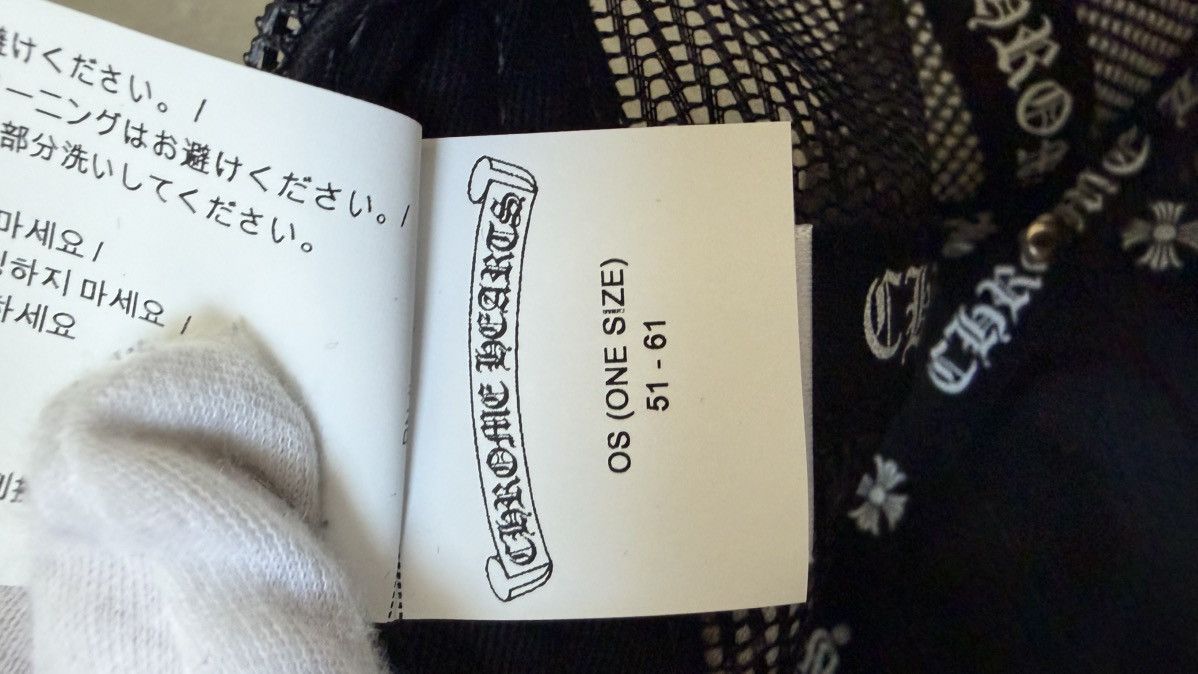 避けください。 /
ーニングはお避けください。 /
部分洗いしてください。
마세요 /
하지 마세요 /
하세요
CHROME HEARTS
OS (ONE SIZE)
51 - 61
CHRO
CHROME
CH